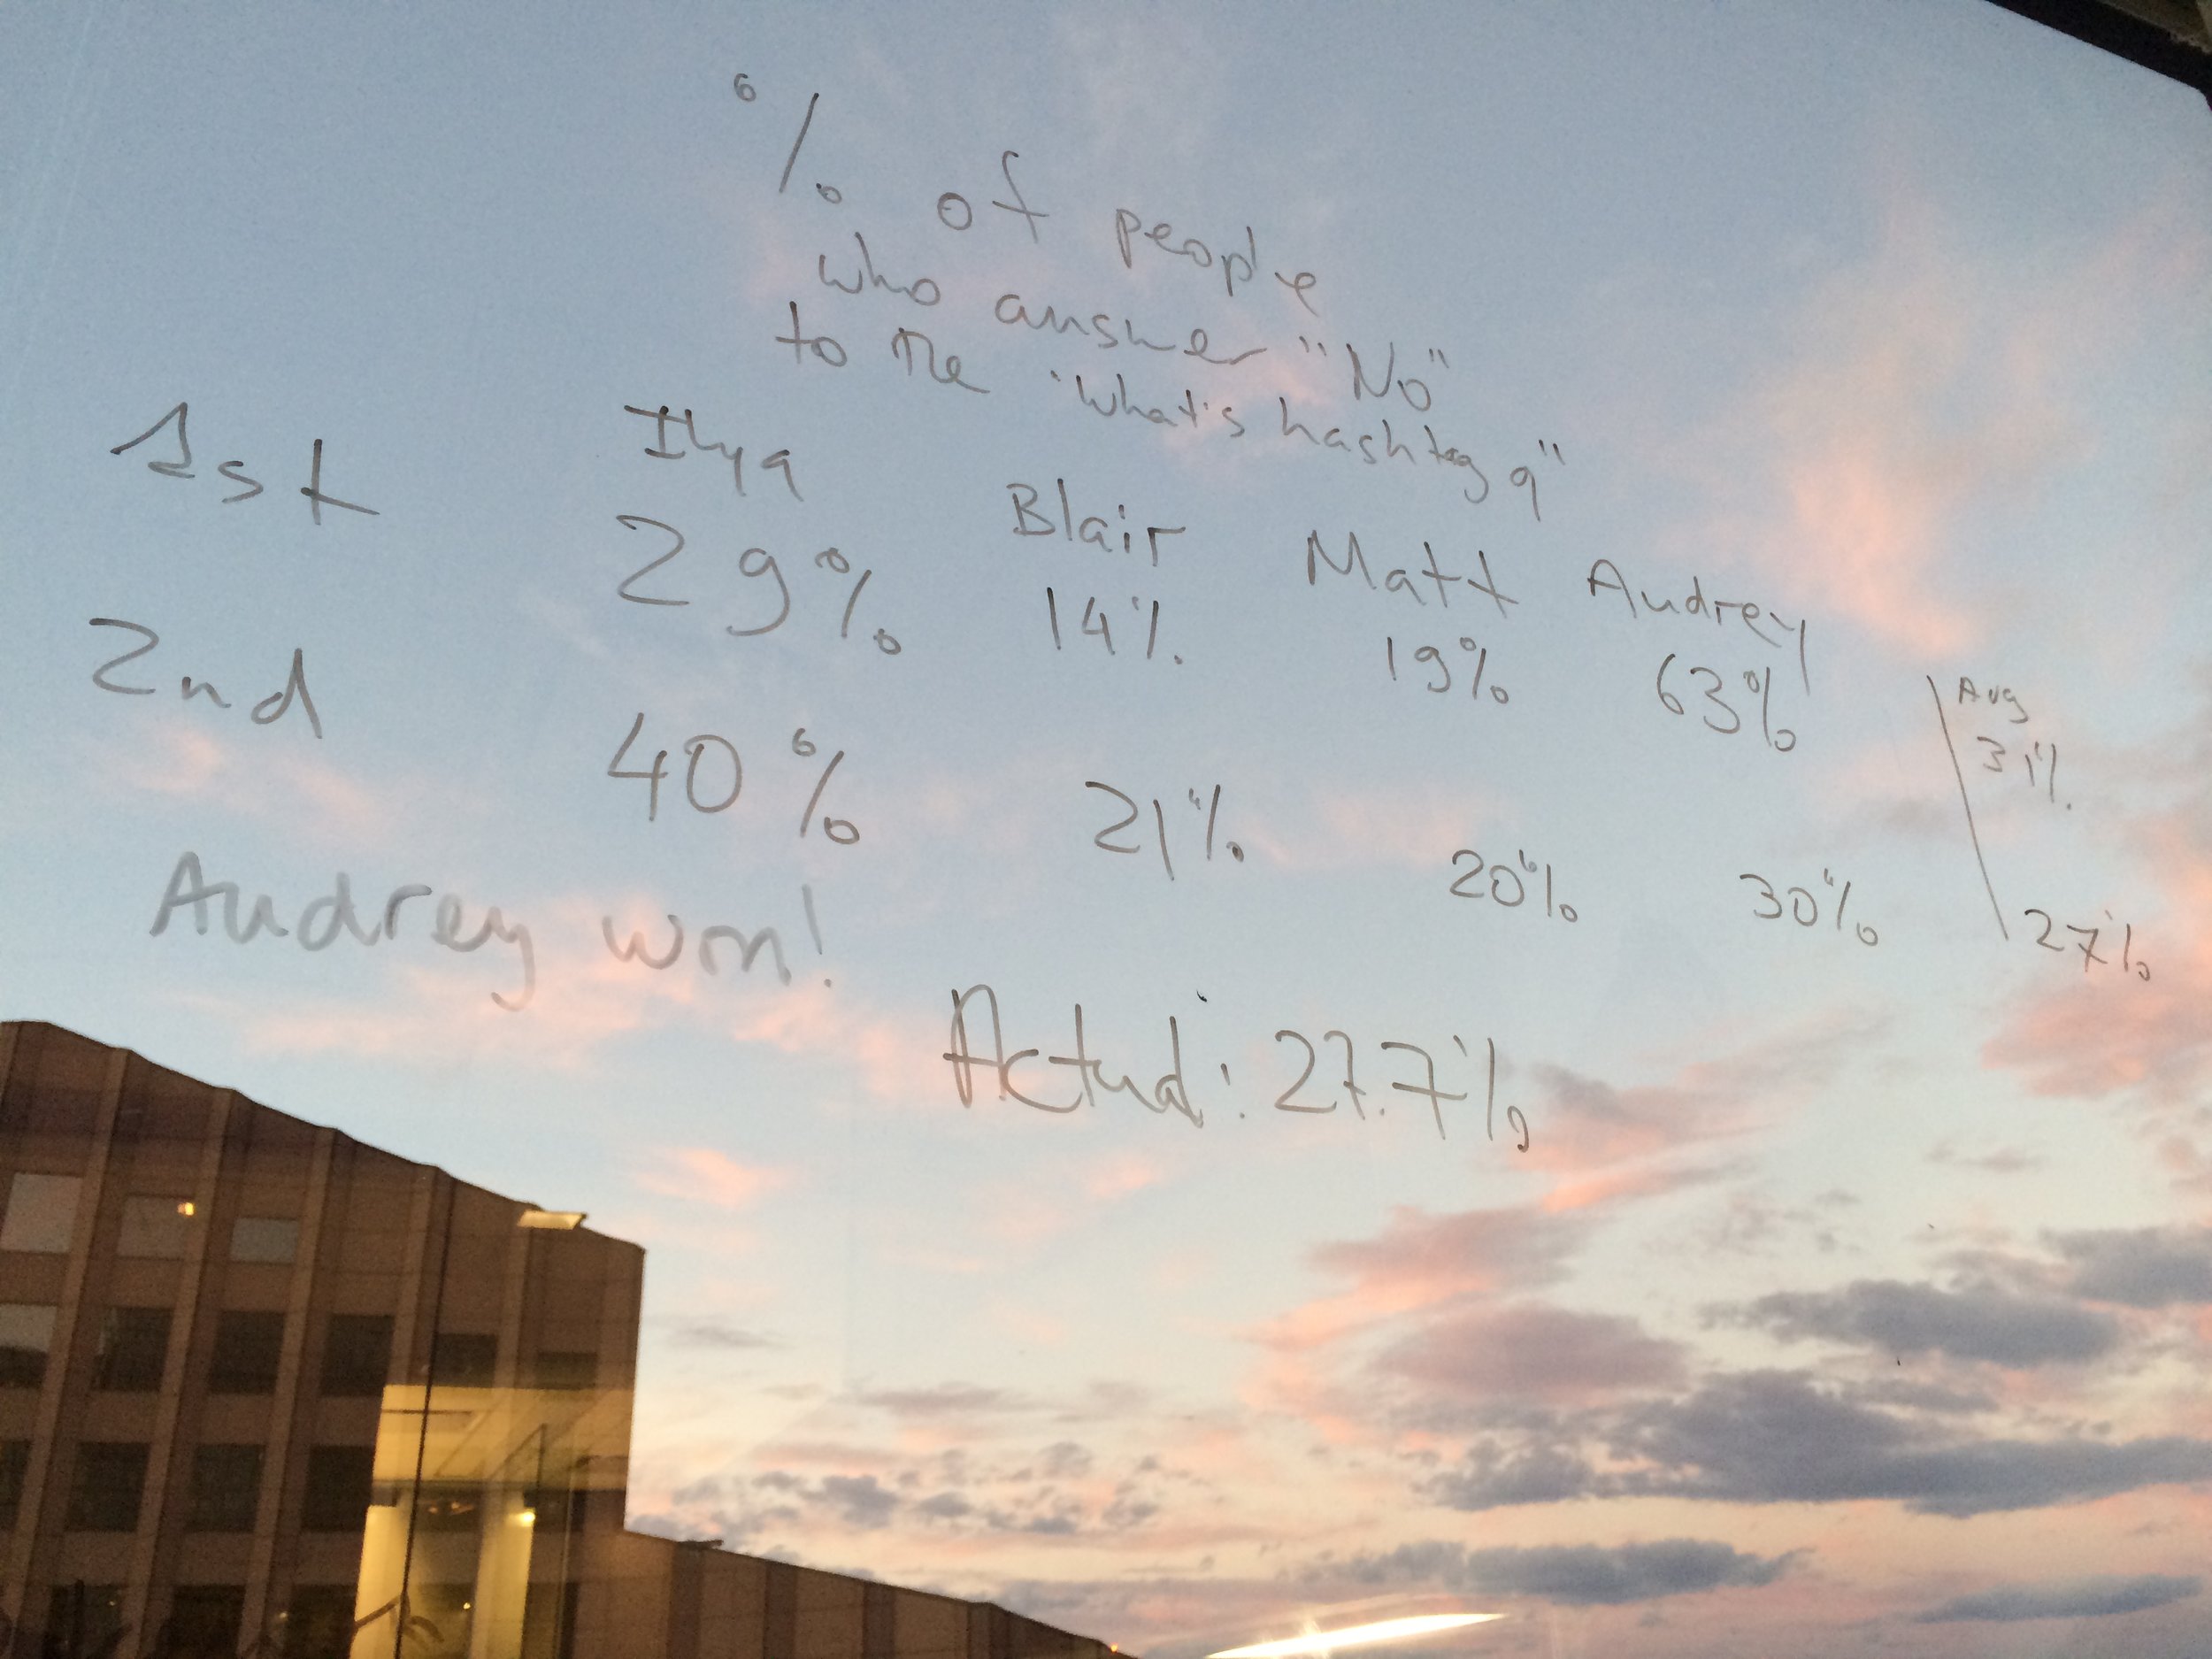 % of people
who answer "No"
to the "What's hashtag q"
Ilya Blair Matt Audrey Avg
1st 29% 14% 19% 63% 31%
2nd 40% 21% 20% 30% 27%
Audrey won!
Actual: 27.7%